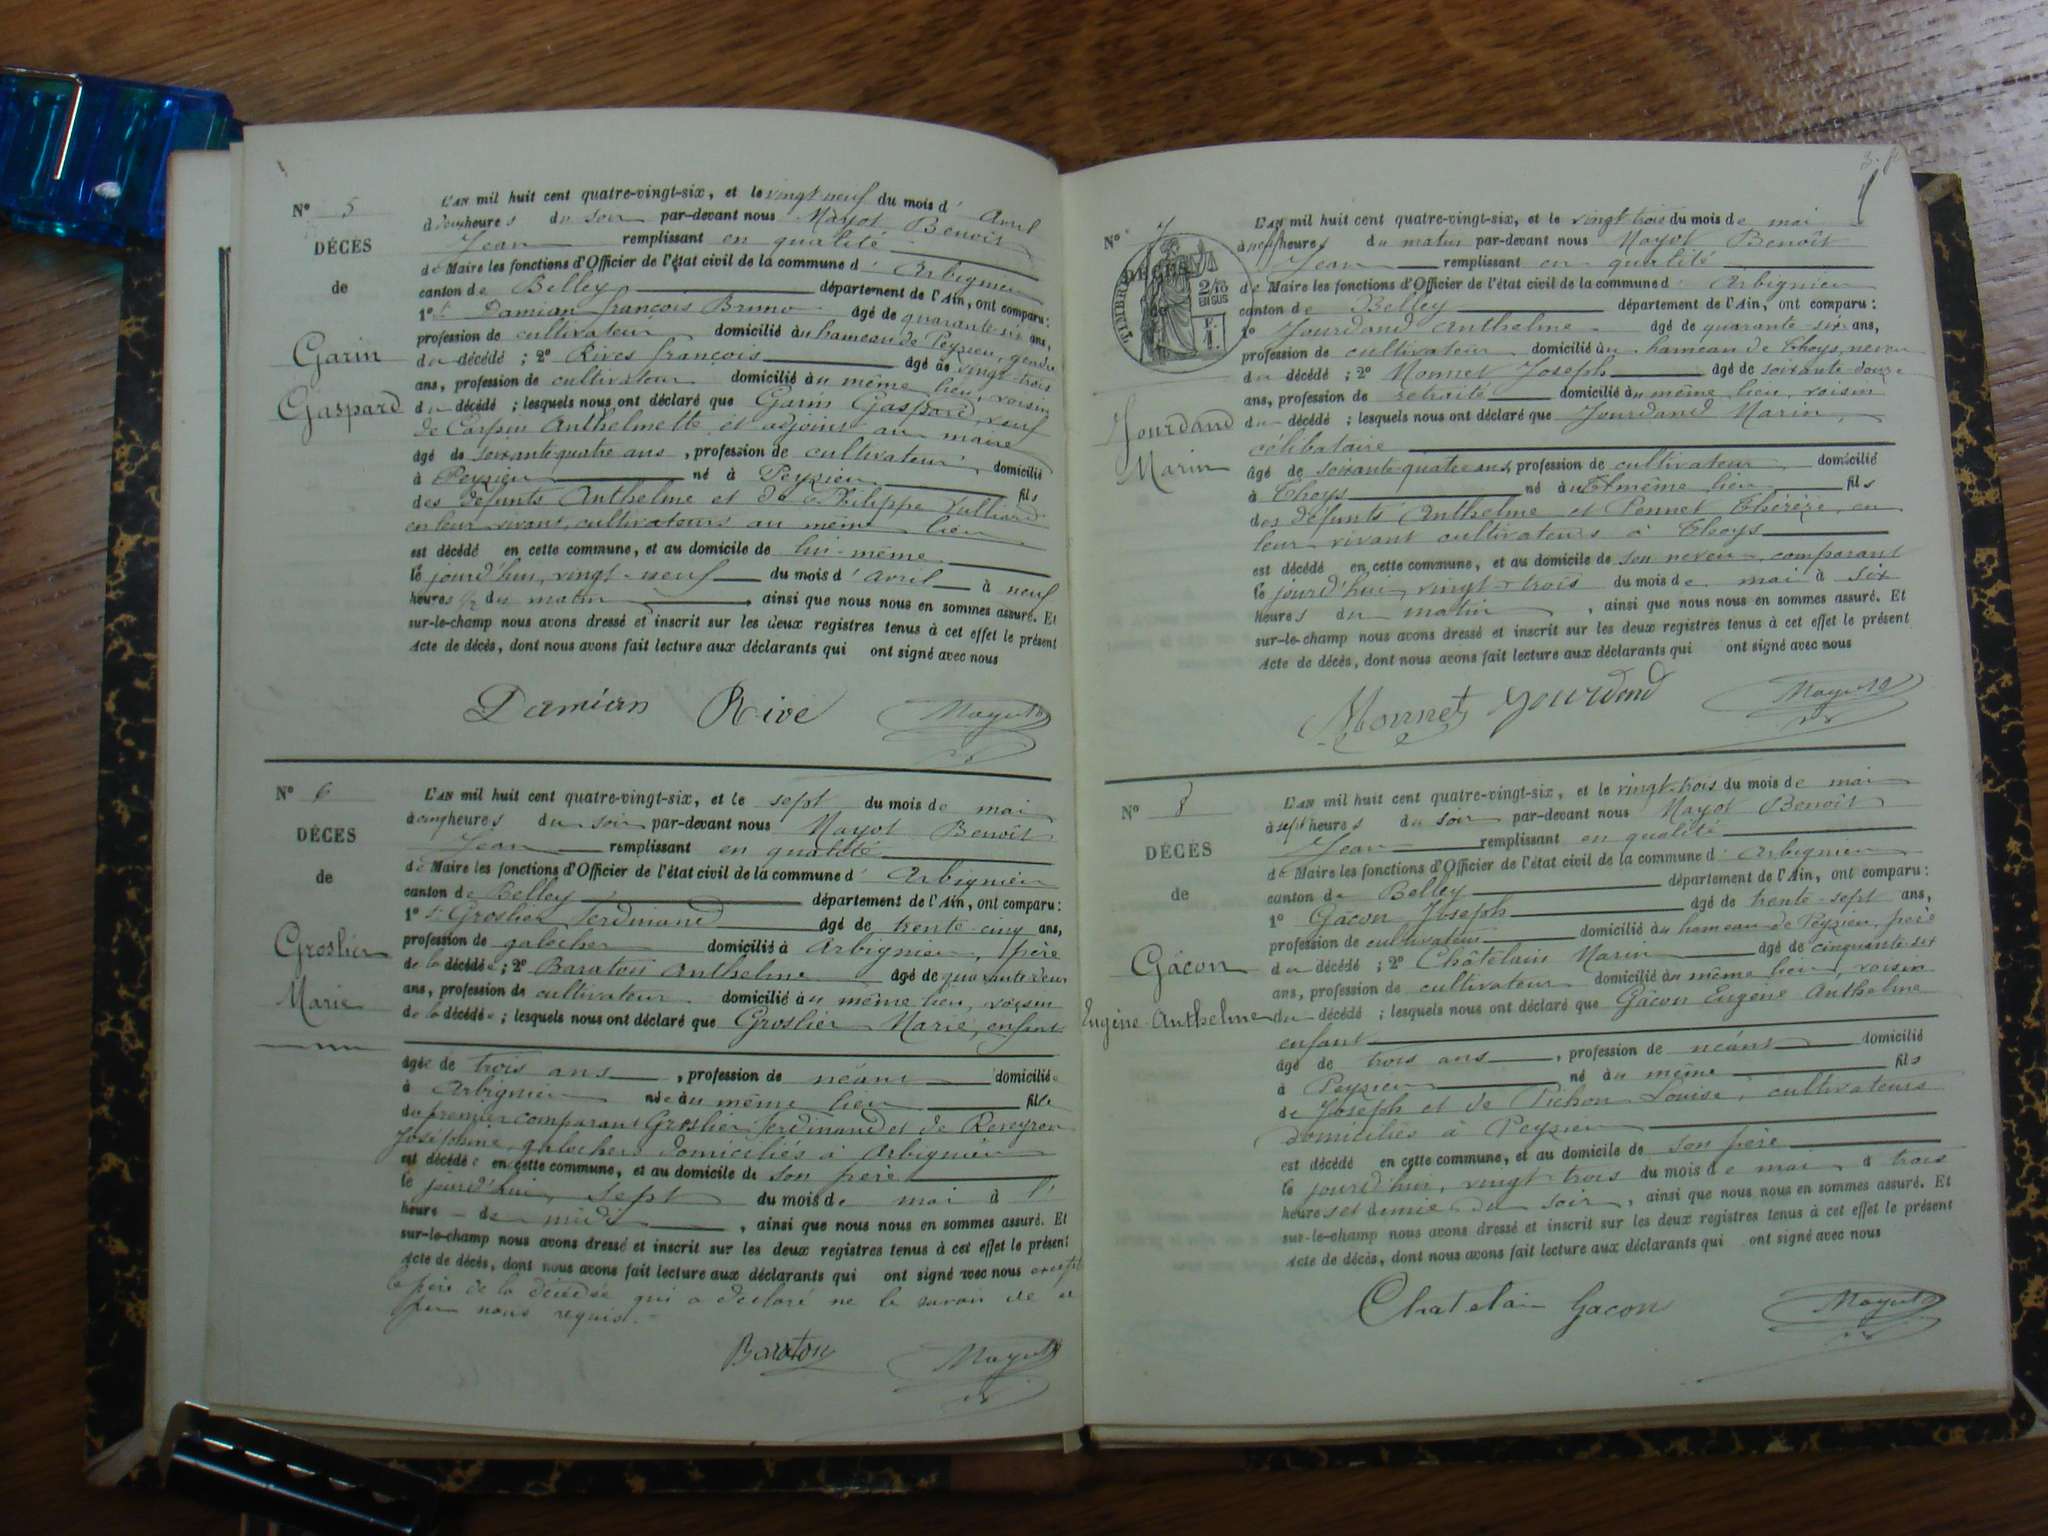 N° 5
DÉCÈS
de
Garin
Gaspard
L'AN mil huit cent quatre-vingt-six, et le vingt neuf du mois d' Avril
à deux heures du soir par-devant nous Mayot Benoît
Jean remplissant en qualité
de Maire les fonctions d'Officier de l'état civil de la commune d' Arbignieu
canton de Belley département de l'Ain, ont comparu:
1° Damian françois Bruno âgé de quarante-six ans,
profession de cultivateur domicilié au hameau de Peyzieu, gendre
du décédé; 2° Rives françois âgé de vingt-trois
ans, profession de cultivateur domicilié au même lieu, voisin
du décédé; lesquels nous ont déclaré que Garin Gaspard, veuf
de Carpin Anthelmette et adjoint au maire
âgé de soixante quatre ans, profession de cultivateur, domicilié
à Peyzieu né à Peyzieu fils
des défunts Anthelme et de Philippe
en leur vivant, cultivateurs au même lieu
est décédé en cette commune, et au domicile de lui-même
le jourd'hui, vingt-neuf du mois d' avril à neuf
heures 1/2 du matin, ainsi que nous nous en sommes assuré. Et
sur-le-champ nous avons dressé et inscrit sur les deux registres tenus à cet effet le présent
Acte de décès, dont nous avons fait lecture aux déclarants qui ont signé avec nous
Damian Rive Mayot B
N° 6
DÉCÈS
de
Groslier
Marie
L'AN mil huit cent quatre-vingt-six, et le sept du mois de mai
à cinq heures du soir par-devant nous Mayot Benoît
Jean remplissant en qualité
de Maire les fonctions d'Officier de l'état civil de la commune d' Arbignieu
canton de Belley département de l'Ain, ont comparu:
1° Groslier Ferdinand âgé de trente-cinq ans,
profession de galocher domicilié à Arbignieu, père
de la décédée; 2° Baraton Anthelme âgé de quarante deux
ans, profession de cultivateur domicilié au même lieu, voisin
de la décédée; lesquels nous ont déclaré que Groslier Marie, enfant
âgée de trois ans, profession de néant domiciliée
à Arbignieu née au même lieu fille
du premier comparant Groslier ferdinand et de Reveyron
Joséphine, galochers domiciliés à Arbignieu
est décédée en cette commune, et au domicile de son père
le jourd'hui, sept du mois de mai à l'
heure de midi, ainsi que nous nous en sommes assuré. Et
sur-le-champ nous avons dressé et inscrit sur les deux registres tenus à cet effet le présent
Acte de décès, dont nous avons fait lecture aux déclarants qui ont signé avec nous excepté
le père de la décédée qui a déclaré ne le savoir de ce
par nous requis.
Baraton Mayot B
N° 7
DÉCÈS
de
TIMBRE
2/10
EN SUS
Jourdand
Marin
L'AN mil huit cent quatre-vingt-six, et le vingt-trois du mois de mai
à neuf heures du matin par-devant nous Mayot Benoît
Jean remplissant en qualité
de Maire les fonctions d'Officier de l'état civil de la commune d' Arbignieu
canton de Belley département de l'Ain, ont comparu:
1° Jourdand Anthelme âgé de quarante-six ans,
profession de cultivateur domicilié au hameau de Thoys, neveu
du décédé; 2° Monnet Joseph âgé de soixante douze
ans, profession de retraité domicilié au même lieu, voisin
du décédé; lesquels nous ont déclaré que Jourdand Marin,
célibataire
âgé de soixante quatre ans, profession de cultivateur domicilié
à Thoys né au même lieu fils
des défunts Anthelme et Pennet Thérèze, en
leur vivant cultivateurs à Thoys
est décédé en cette commune, et au domicile de son neveu comparant
le jourd'hui, vingt-trois du mois de mai à six
heures du matin, ainsi que nous nous en sommes assuré. Et
sur-le-champ nous avons dressé et inscrit sur les deux registres tenus à cet effet le présent
Acte de décès, dont nous avons fait lecture aux déclarants qui ont signé avec nous
Monnet Jourdand Mayot B
N° 8
DÉCÈS
de
Gâcon
Eugène Anthelme
L'AN mil huit cent quatre-vingt-six, et le vingt-trois du mois de mai
à sept heures du soir par-devant nous Mayot Benoît
Jean remplissant en qualité
de Maire les fonctions d'Officier de l'état civil de la commune d' Arbignieu
canton de Belley département de l'Ain, ont comparu:
1° Gâcon Joseph âgé de trente-sept ans,
profession de cultivateur domicilié au hameau de Peyzieu, père
du décédé; 2° Châtelain Marin âgé de cinquante-six
ans, profession de cultivateur domicilié au même lieu, voisin
du décédé; lesquels nous ont déclaré que Gâcon Eugène Anthelme
enfant
âgé de trois ans, profession de néant domicilié
à Peyzieu né au même fils
de Joseph et de Pichon Louise, cultivateurs
domiciliés à Peyzieu
est décédé en cette commune, et au domicile de son père
le jourd'hui, vingt-trois du mois de mai à trois
heures et demie du soir, ainsi que nous nous en sommes assuré. Et
sur-le-champ nous avons dressé et inscrit sur les deux registres tenus à cet effet le présent
Acte de décès, dont nous avons fait lecture aux déclarants qui ont signé avec nous
Chatelain Gacon Mayot B